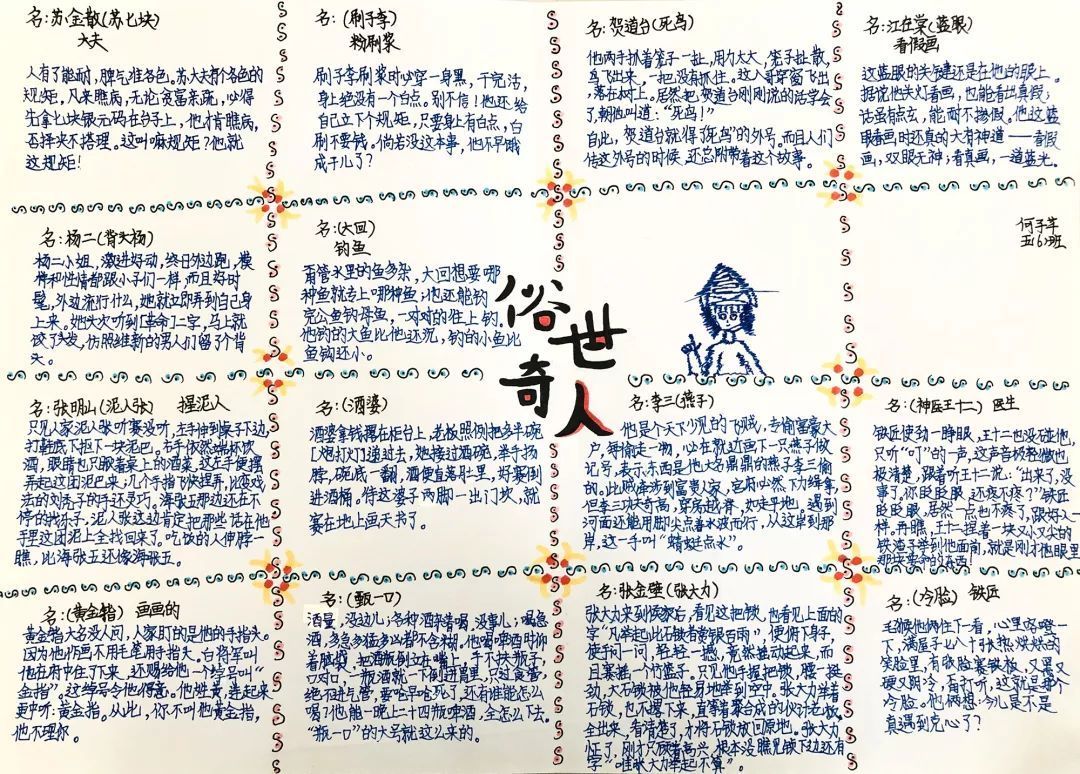 名:苏金散(苏七块)
大夫
人有了能耐,脾气准各色。苏大夫有个各色的
规矩,凡来瞧病,无论贫富亲疏,必得
先拿七块银元码在台子上,他才肯瞧病,
否择决不搭理。这叫嘛规矩?他就
这规矩!
名:(刷子李)
粉刷浆
刷子李刷浆时必穿一身黑,干完活,
身上绝没有一个白点。别不信!他还给
自己立下个规矩,只要身上有白点,白
刷不要钱。倘若没这本事,他不早饿
成干儿了?
名:贺道台(死鸟)
他两手抓着笼子一扯,用力太大,笼子扯散,
鸟飞出来,一把没有抓住。这八哥穿窗飞出
,落在树上。居然把贺道台刚刚说的话学会
了,朝他叫道:“死鸟!”
自此,贺道台就得“死鸟”的外号。而且人们
传这外号的时候,还总附带着这个故事。
名:江在棠(蓝眼)
看假画
这蓝眼的关键还是在他的眼上。
据说他关灯看画,也能看出真假;
话虽有点玄,能耐不掺假。他这蓝
眼看画时还真的大有神道——看假
画,双眼无神;看真画,一道蓝光。
名:杨二(背头杨)
杨二小姐,激进好动,终日外边跑,模
样和性情都跟小子们一样,而且好时
髦,外边流行什么,她就立即弄到自己身
上来。她头次听到[革命]二字,马上就
铰了头发,仿照维新的男人们留了个背
头。
名:(大回)
钓鱼
甭管水里的鱼多杂,大回想要哪
种鱼就专上哪种鱼;他还能钓
完公鱼钓母鱼,一对对的往上钓。
他钓的大鱼比他还沉,钓的小鱼比
鱼钩还小。
俗世奇人
何子羊
五(6)班
名:张明山(泥人张) 捏泥人
只见人家泥人张听赛没听,左手伸到桌子下边,
打鞋底下抠下一块泥巴。右手依然端杯饮
酒,眼睛也只瞅着桌上的酒菜,这左手便摆
弄起这团泥巴来;几个手指飞快捏弄,比变戏
法的刘秀子的手还灵巧。海张五那边还在不
停的找乐子,泥人张这边肯定把那些话在他
手里这团泥上全找回来了。吃饭的人伸脖一
瞧,比海张五还像海张五。
名:(酒婆)
酒婆拿钱撂在柜台上,老板照例把多半碗
[炮打灯]递过去,她接过酒碗,举手扬
脖,碗底一翻,酒便直落肚里,好赛倒
进酒桶。待这婆子两脚一出门坎,就
赛在地上画天书了。
名:李三(燕子)
他是个天下少见的飞贼,专偷富豪大
户,每偷走一物,必在就近画下一只燕子做
记号,表示东西是他大名鼎鼎的燕子李三偷
的。此贼牵涉到富贵人家,官府必然下力缉拿,
但李三决奇高,穿房越脊,如走平地。遇到
河面还能用脚尖点着水波而行,从这岸到那
岸,这一手叫“蜻蜓点水”。
名:(神医王十二) 医生
铁匠使劲一睁眼,王十二也没碰他,
只听“叮”的一声,这声音极轻微也
极清楚,跟着听王十二说:“出来了,没
事了,你眨眨眼,还疼不疼?”铁匠
眨眨眼,居然一点也不疼了,跟好人一
样。再瞧,王十二捏着一块又小又尖的
铁渣子举到他面前,就是刚才他眼里
那块要命的东西!
名:(黄金指) 画画的
黄金指大名没人问,人家盯的是他的手指头。
因为他作画不用毛笔用手指头。白将军叫
他在府中住了下来,还赐给他一个绰号叫“
金指”。这绰号令他得意。他姓黄,连起来
更中听:黄金指。从此,你不叫他黄金指,
他不理你。
名:(甄一口)
酒量,没边儿;各种酒掺着喝,没事儿;喝急
酒,多急多猛多凶都不含糊。他喝啤酒时仰
着脑袋,把酒瓶倒立在嘴上,手不扶瓶子,
口对口,一瓶酒就一下倒进胃里,只过食管,
绝不进气管,要呛早呛死了,还有谁能怎么
喝?他能一晚上二十四瓶啤酒,全怎么下去。
“瓶一口”的大号就这么来的。
名:张金璧(张大力)
张大力来到侯家后,看见这把锁,也看见上面的
字“凡举起此石锁者赏银百两”,便俯下身子,
使手问一问,轻轻一撼,竟然摇动起来,而
且赛摇一个竹篮子。只见他手握把锁,腰一挺
劲,大石锁被他轻易地举到空中。张大力举着
石锁,也不撂下来,直等着聚合成的伙计老板
全出来,看清楚了,才将石锁放回原地。张大力
怔了,刚才只顾着高兴,根本没瞧见锁下边还有
字“唯张大力举起不算”。
名:(冷脸) 铁匠
毛猴他俩往下一看,心里好嘭一
下,满屋子七八十张热烘烘的
笑脸里,有张脸赛铁板,又黑又
硬又阴冷,再打听,这就是那个
冷脸。他俩想:今儿是不是
真遇到克心了?